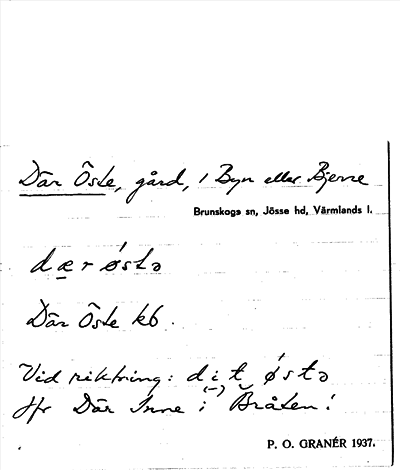 Där Öste, gård, i Byn eller Bjerne
Brunskogs sn, Jösse hd, Värmlands l.
dær ǿstə
Där Öste kb.
Vid riktning: dit ǿstə
(-)
Jfr Där Inne i Bråten!
P. O. GRANÉR 1937.